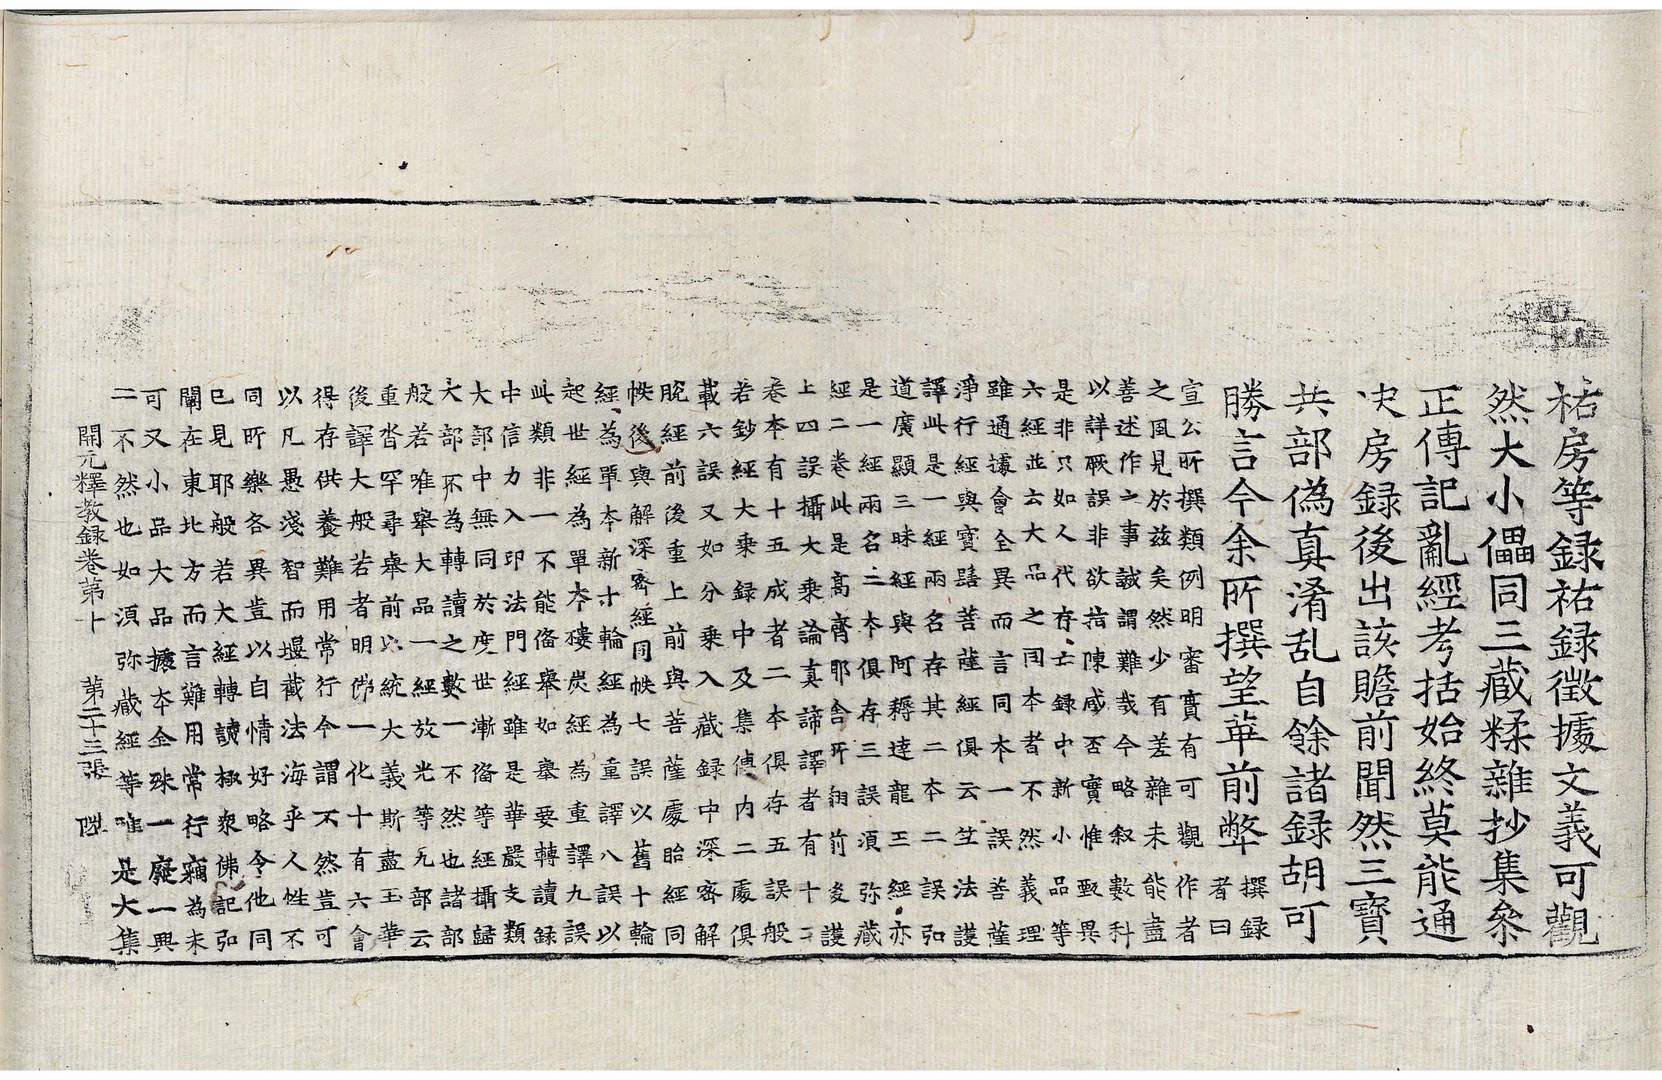 祐房等録祐録徴據文義可觀
然大小儡同三蔵糅雜抄集叅
正傳記亂經考括始終莫能通
决房録後出該贍前聞然三寳
共部偽真淆乱自餘諸録胡可
勝言今余所撰望革前弊撰録者曰
宣公所撰類例明審實有可觀作者
之風見於兹矣然少有差雜未能盡
善述作之事誠謂難哉今略叙數科
以詳厥誤非欲指陳咸否實惟甄異
是非只如人代存亡録中新小品等
六經並云大品之同本者不然義理
雖通據會全異而言同本一誤善薩
淨行經與寳髻菩薩經俱云竺法護
譯此是一經兩名存其二本二誤弘
道廣顯三昧經與阿耨達龍王經亦
是一經兩名二夲俱存三誤須弥藏
經二卷此是髙齊耶舎所翻前後護
上四誤攝大乗論真諦譯者有十二
卷本有十五成者二本俱存五誤般
若鈔經大乗録中及集傳内二處俱
載六誤又如分乗入蔵録中深密解
脫經前後重上前與菩薩處胎經同
帙後與解深密經同帙七誤以舊十輪
經為單夲新十輪經為重譯八誤以
起世經為單夲樓炭經為重譯九誤
此類非一不能俻舉如舉要轉讀録
中信力入印法門經雖是華嚴支類
大部中無同於度世漸俻等經攝歸
大部不為轉讀之數一不然也諸部
般若唯舉大品一經放光等九部云
重沓罕尋舉前以統大義斯盡玉華
後譯大般若者明佛一化十有六會
得存供養難用常行今謂不然豈可
以凡愚淺智而堰截法海乎人性不
同所樂各異豈以自情好略令他同
已見耶般若大經轉讀極衆佛記弘
闡在東北方而言難用常行竊為未
可又小品大品據夲全殊一廢一興
二不然也如須弥藏經等唯是大集
開元釋教録卷第十 第二十三張 陞